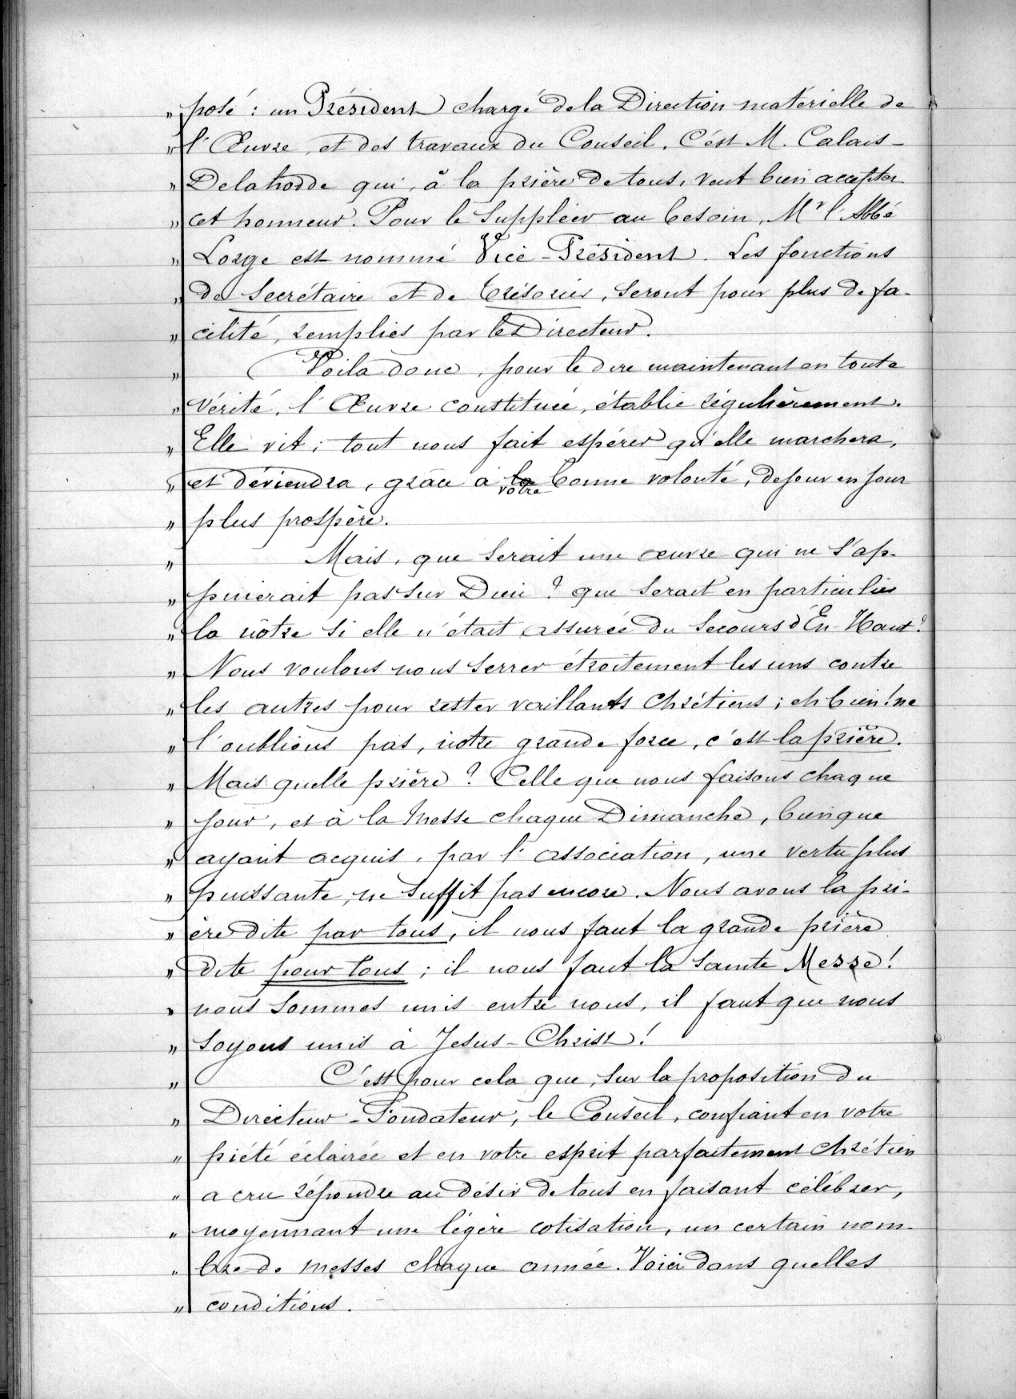 „ posé : un Président chargé de la Direction matérielle de
„ l'Œuvre, et des travaux du Conseil. C'est M. Calais-
„ Delahodde qui, à la prière de tous, veut bien accepter
„ cet honneur. Pour le suppléer au besoin, Mr l'Abbé
„ Lorge est nommé Vice-Président. Les fonctions
„ de secrétaire et de trésorier, seront pour plus de fa-
„ cilité, remplies par le Directeur.
„ Voila donc, pour le dire maintenant en toute
„ vérité, l'Œuvre constituée, établie régulièrement.
„ Elle vit ; tout nous fait espérer qu'elle marchera,
„ et déviendra, grâce à la votre bonne volonté, de jour en jour
„ plus prospère.
„ Mais, que serait une œuvre qui ne s'ap-
„ puierait pas sur Dieu ? que serait en particulier
„ la nôtre si elle n'était assurée du secours d'En Haut ?
„ Nous voulons nous serrer étroitement les uns contre
„ les autres pour rester vaillants chrétiens ; eh bien ! ne
„ l'oublions pas, notre grande force, c'est la prière.
„ Mais quelle prière ? Celle que nous faisons chaque
„ jour, et à la Messe chaque Dimanche, bien que
„ ayant acquis, par l'association, une vertu plus
„ puissante, ne suffit pas encore. Nous avons la pri-
„ ère dite par tous, il nous faut la grande prière
„ dite pour tous ; il nous faut la sainte Messe !
„ nous sommes unis entre nous, il faut que nous
„ soyons unis à Jesus-Christ !
„ C'est pour cela que, sur la proposition du
„ Directeur-Fondateur, le Conseil, confiant en votre
„ piété éclairée et en votre esprit parfaitement chrétien
„ a cru répondre au désir de tous en faisant célébrer,
„ moyennant une légère cotisation, un certain nom-
„ bre de messes chaque année. Voici dans quelles
„ conditions.